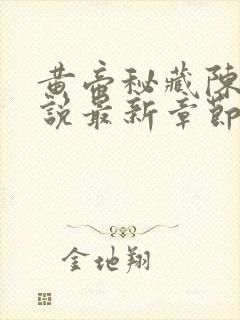 黄帝秘藏陈
說最新章節
金地翔